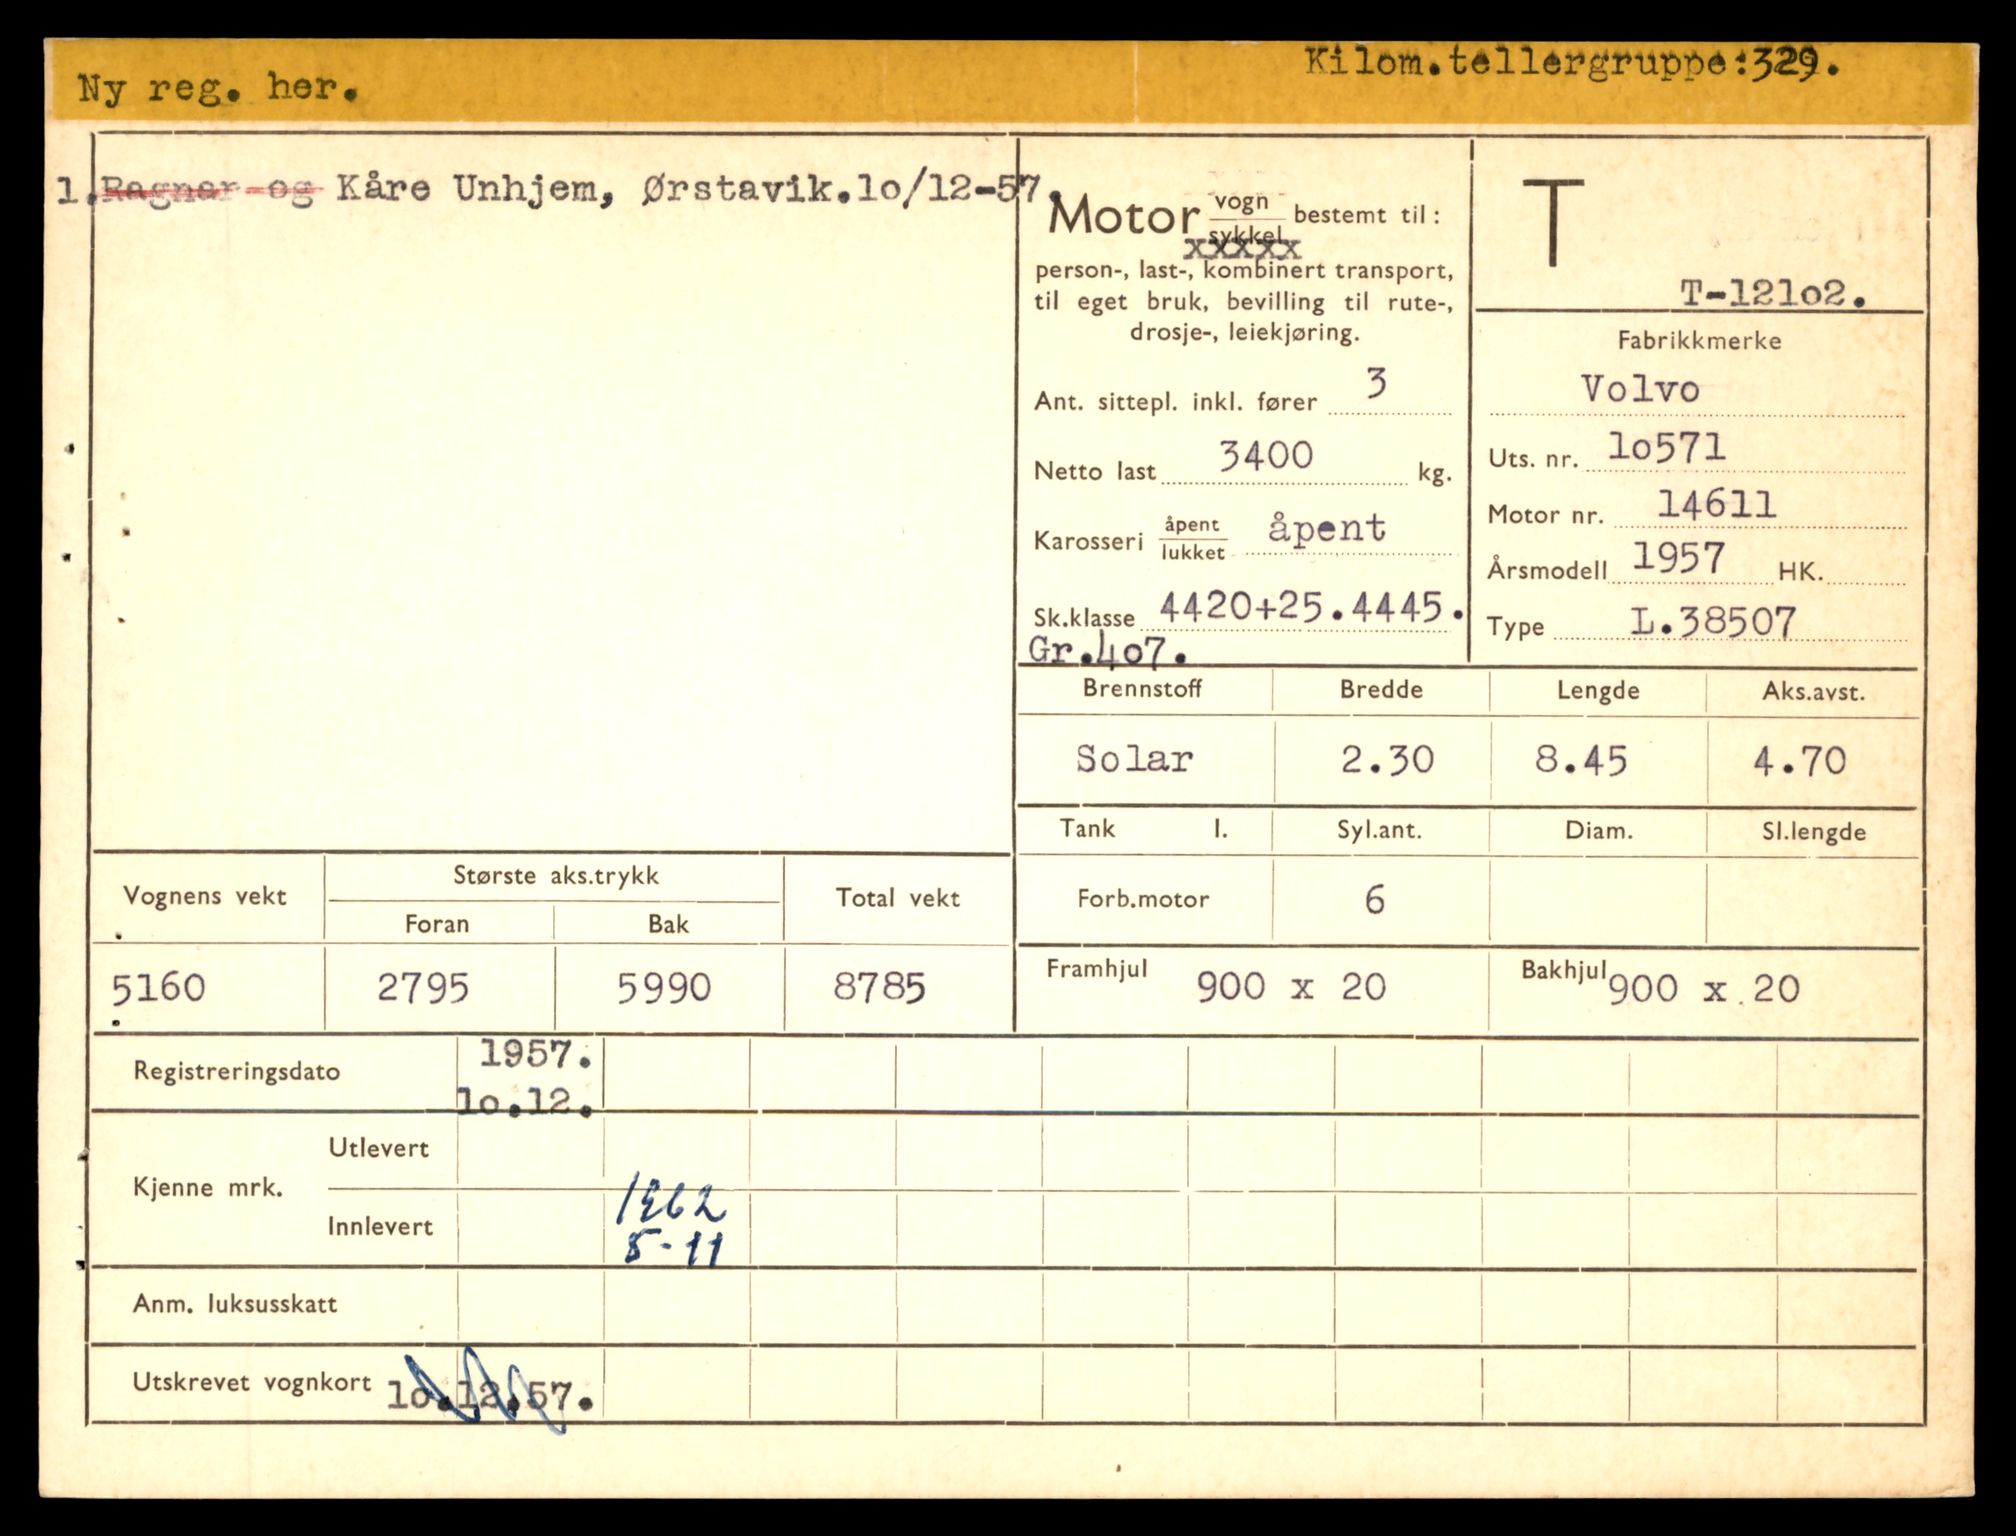 Ny reg. her.
Kilom.tellergruppe:329.
1. Ragnar og Kåre Unhjem, Ørstavik.lo/12-57.
Motor vogn/sykkel bestemt til:
xxxxx
person-, last-, kombinert transport,
til eget bruk, bevilling til rute-,
drosje-, leiekjøring.
Ant. sittepl. inkl. fører 3
Netto last 3400 kg.
Karosseri åpent/lukket åpent
Sk.klasse 4420+25.4445.
Gr.4o7.
T
T-12lo2.
Fabrikkmerke
Volvo
Uts. nr. lo571
Motor nr. 14611
Årsmodell 1957 HK.
Type L.38507
Brennstoff Bredde Lengde Aks.avst.
Solar 2.30 8.45 4.70
Tank l. Syl.ant. Diam. Sl.lengde
Forb.motor 6
Framhjul 900 x 20 Bakhjul 900 x 20
Vognens vekt Største aks.trykk Total vekt
Foran Bak
5160 2795 5990 8785
Registreringsdato 1957.
lo.12.
Kjenne mrk. Utlevert
Innlevert 1962
5-11
Anm. luksusskatt
Utskrevet vognkort lo.12.57.